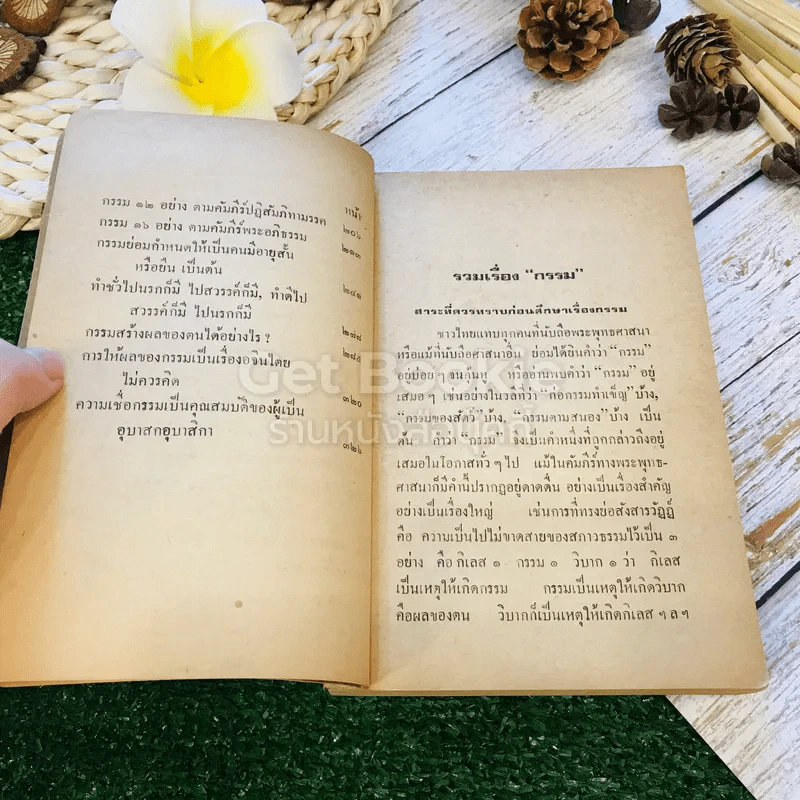 หน้า
กรรม ๑๒ อย่าง ตามคัมภีร์ปฏิสัมภิทามรรค ๒๐๖
กรรม ๑๖ อย่าง ตามคัมภีร์พระอภิธรรม ๒๑๓
กรรมย่อมกำหนดให้เป็นคนมีอายุสั้น
หรือยืน เป็นต้น ๒๔๑
ทำชั่วไปนรกก็มี ไปสวรรค์ก็มี, ทำดีไป
สวรรค์ก็มี ไปนรกก็มี ๒๗๘
กรรมสร้างผลของตนได้อย่างไร ? ๒๘๕
การให้ผลของกรรมเป็นเรื่องอจินไตย
ไม่ควรคิด ๓๒๐
ความเชื่อกรรมเป็นคุณสมบัติของผู้เป็น
อุบาสกอุบาสิกา ๓๒๖
รวมเรื่อง “กรรม”
สาระที่ควรทราบก่อนศึกษาเรื่องกรรม
ชาวไทยแทบทุกคนที่นับถือพระพุทธศาสนา
หรือแม้ที่นับถือศาสนาอื่น ย่อมได้ยินคำว่า “กรรม”
อยู่บ่อย ๆ จนคุ้นหู หรืออ่านพบคำว่า “กรรม” อยู่
เสมอ ๆ เช่นอย่างในวลีที่ว่า “ก่อกรรมทำเข็ญ” บ้าง,
“กรรมของสัตว์” บ้าง, “กรรมตามสนอง” บ้าง เป็น
ต้น คำว่า “กรรม” จึงเป็นคำหนึ่งที่ถูกกล่าวถึงอยู่
เสมอในโอกาสทั่ว ๆ ไป แม้ในคัมภีร์ทางพระพุทธ-
ศาสนาก็มีคำนี้ปรากฏอยู่ดาดดื่น อย่างเป็นเรื่องสำคัญ
อย่างเป็นเรื่องใหญ่ เช่นการที่ทรงย่อสังสารวัฏฏ์
คือ ความเป็นไปไม่ขาดสายของสภาวธรรมไว้เป็น ๓
อย่าง คือ กิเลส ๑ กรรม ๑ วิบาก ๑ ว่า กิเลส
เป็นเหตุให้เกิดกรรม กรรมเป็นเหตุให้เกิดวิบาก
คือผลของตน วิบากก็เป็นเหตุให้เกิดกิเลส ฯ ล ฯ
Get Bookie